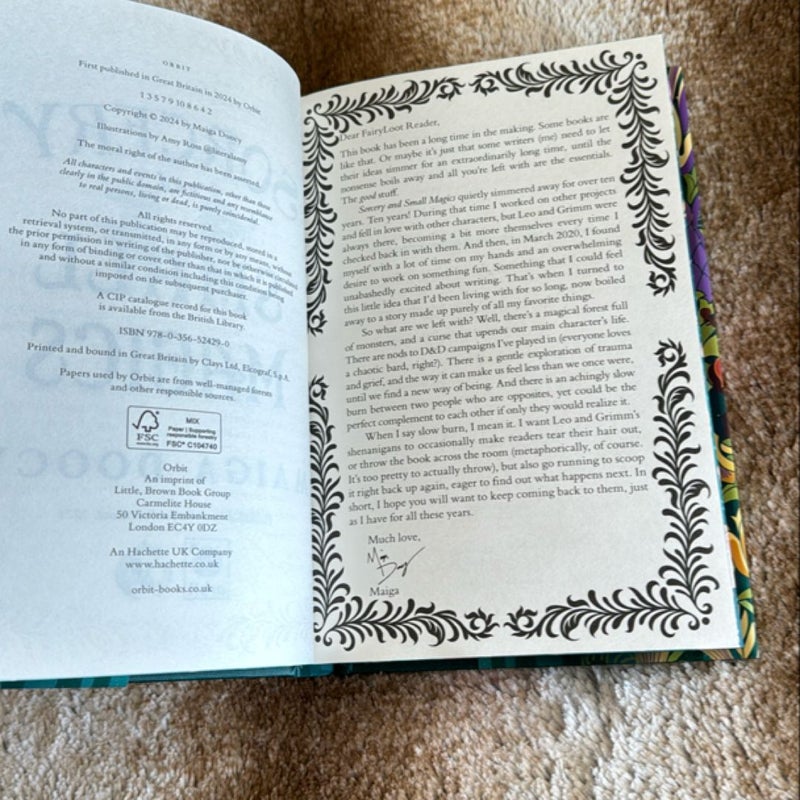 ORBIT
First published in Great Britain in 2024 by Orbit
1 3 5 7 9 10 8 6 4 2
Copyright © 2024 by Maiga Doocy
Illustrations by Amy Ross @literalamy
The moral right of the author has been asserted.
All characters and events in this publication, other than those
clearly in the public domain, are fictitious and any resemblance
to real persons, living or dead, is purely coincidental.
All rights reserved.
No part of this publication may be reproduced, stored in a
retrieval system, or transmitted, in any form or by any means, without
the prior permission in writing of the publisher, nor be otherwise circulated
in any form of binding or cover other than that in which it is published
and without a similar condition including this condition being
imposed on the subsequent purchaser.
A CIP catalogue record for this book
is available from the British Library.
ISBN 978-0-356-52429-0
Printed and bound in Great Britain by Clays Ltd, Elcograf, S.p.A.
Papers used by Orbit are from well-managed forests
and other responsible sources.
FSC
www.fsc.org
MIX
Paper | Supporting
responsible forestry
FSC® C104740
Orbit
An imprint of
Little, Brown Book Group
Carmelite House
50 Victoria Embankment
London EC4Y 0DZ
An Hachette UK Company
www.hachette.co.uk
orbit-books.co.uk
Dear FairyLoot Reader,
This book has been a long time in the making. Some books are
like that. Or maybe it's just that some writers (me) need to let
their ideas simmer for an extraordinarily long time, until the
nonsense boils away and all you're left with are the essentials.
The good stuff.
Sorcery and Small Magics quietly simmered away for over ten
years. Ten years! During that time I worked on other projects
and fell in love with other characters, but Leo and Grimm were
always there, becoming a bit more themselves every time I
checked back in with them. And then, in March 2020, I found
myself with a lot of time on my hands and an overwhelming
desire to work on something fun. Something that I could feel
unabashedly excited about writing. That's when I turned to
this little idea that I'd been living with for so long, now boiled
away to a story made up purely of all my favorite things.
So what are we left with? Well, there's a magical forest full
of monsters, and a curse that upends our main character's life.
There are nods to D&D campaigns I've played in (everyone loves
a chaotic bard, right?). There is a gentle exploration of trauma
and grief, and the way it can make us feel less than we once were,
until we find a new way of being. And there is an achingly slow
burn between two people who are opposites, yet could be the
perfect complement to each other if only they would realize it.
When I say slow burn, I mean it. I want Leo and Grimm's
shenanigans to occasionally make readers tear their hair out,
or throw the book across the room (metaphorically, of course.
It's too pretty to actually throw), but also go running to scoop
it right back up again, eager to find out what happens next. In
short, I hope you will want to keep coming back to them, just
as I have for all these years.
Much love,
Maiga